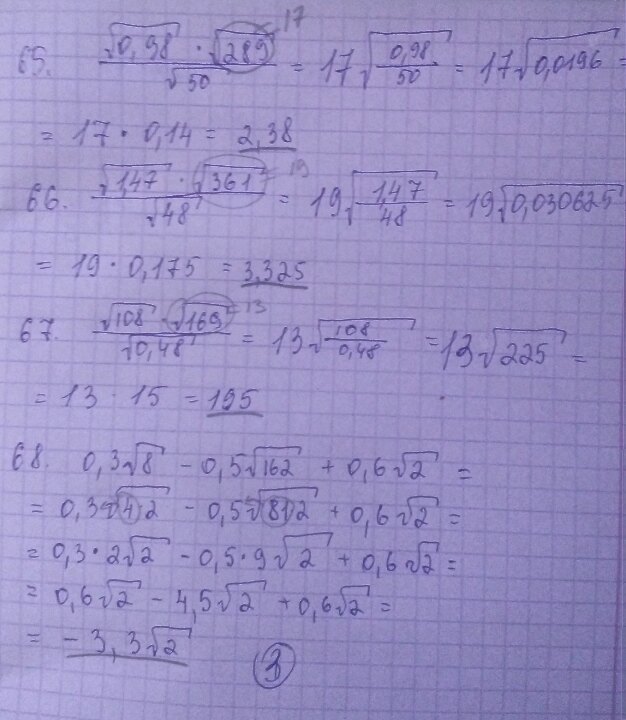 65. √0,98 · √289 17 / √50 = 17√(0,98/50) = 17√0,0196 =
= 17 · 0,14 = 2,38
66. √1,47 · √361 19 / √48 = 19√(1,47/48) = 19√0,030625
= 19 · 0,175 = 3,325
67. √108 · √169 13 / √0,48 = 13√(108/0,48) = 13√225 =
= 13 · 15 = 195
68. 0,3√8 - 0,5√162 + 0,6√2 =
= 0,3√4·2 - 0,5√81·2 + 0,6√2 =
= 0,3·2√2 - 0,5·9√2 + 0,6√2 =
= 0,6√2 - 4,5√2 + 0,6√2 =
= -3,3√2
3